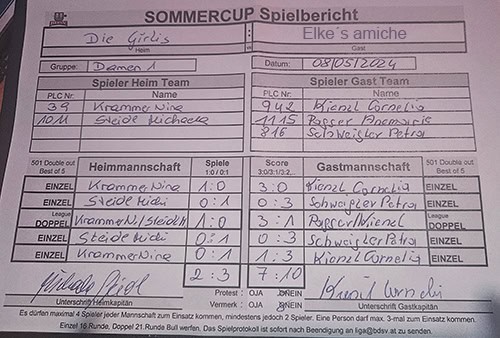 SOMMERCUP Spielbericht
Die Girlis : Elke´s amiche
Heim Gast
Gruppe: Damen 1 Datum: 08/05/2024
Spieler Heim Team Spieler Gast Team
PLC Nr. Name PLC Nr. Name
39 Krammer Nina 942 Kienzl Cornelia
1011 Steidl Michaela 1115 Rapser Annemarie
816 Schweigler Petra
501 Double out Best of 5 Heimmannschaft Spiele 1:0 / 0:1 Score 3:0/3:1/3:2.. Gastmannschaft 501 Double out Best of 5
EINZEL Krammer Nina 1:0 3:0 Kienzl Cornelia EINZEL
EINZEL Steidl Michi 0:1 0:3 Schweigler Petra EINZEL
League DOPPEL Krammer N/Steidl M 1:0 3:1 Rapser/Kienzl League DOPPEL
EINZEL Steidl Michi 0:1 0:3 Schweigler Petra EINZEL
EINZEL Krammer Nina 0:1 1:3 Kienzl Cornelia EINZEL
2:3 7:10
Protest : OJA NEIN
Vermerk : OJA NEIN
Unterschrift Heimkapitän Unterschrift Gastkapitän
Es dürfen maximal 4 Spieler jeder Mannschaft zum Einsatz kommen, mindestens jedoch 2 Spieler. Eine Person darf max. 3-mal zum Einsatz kommen.
Einzel 16.Runde, Doppel 21.Runde Bull werfen. Das Spielprotokoll ist sofort nach Beendigung an liga@bdsv.at zu senden.